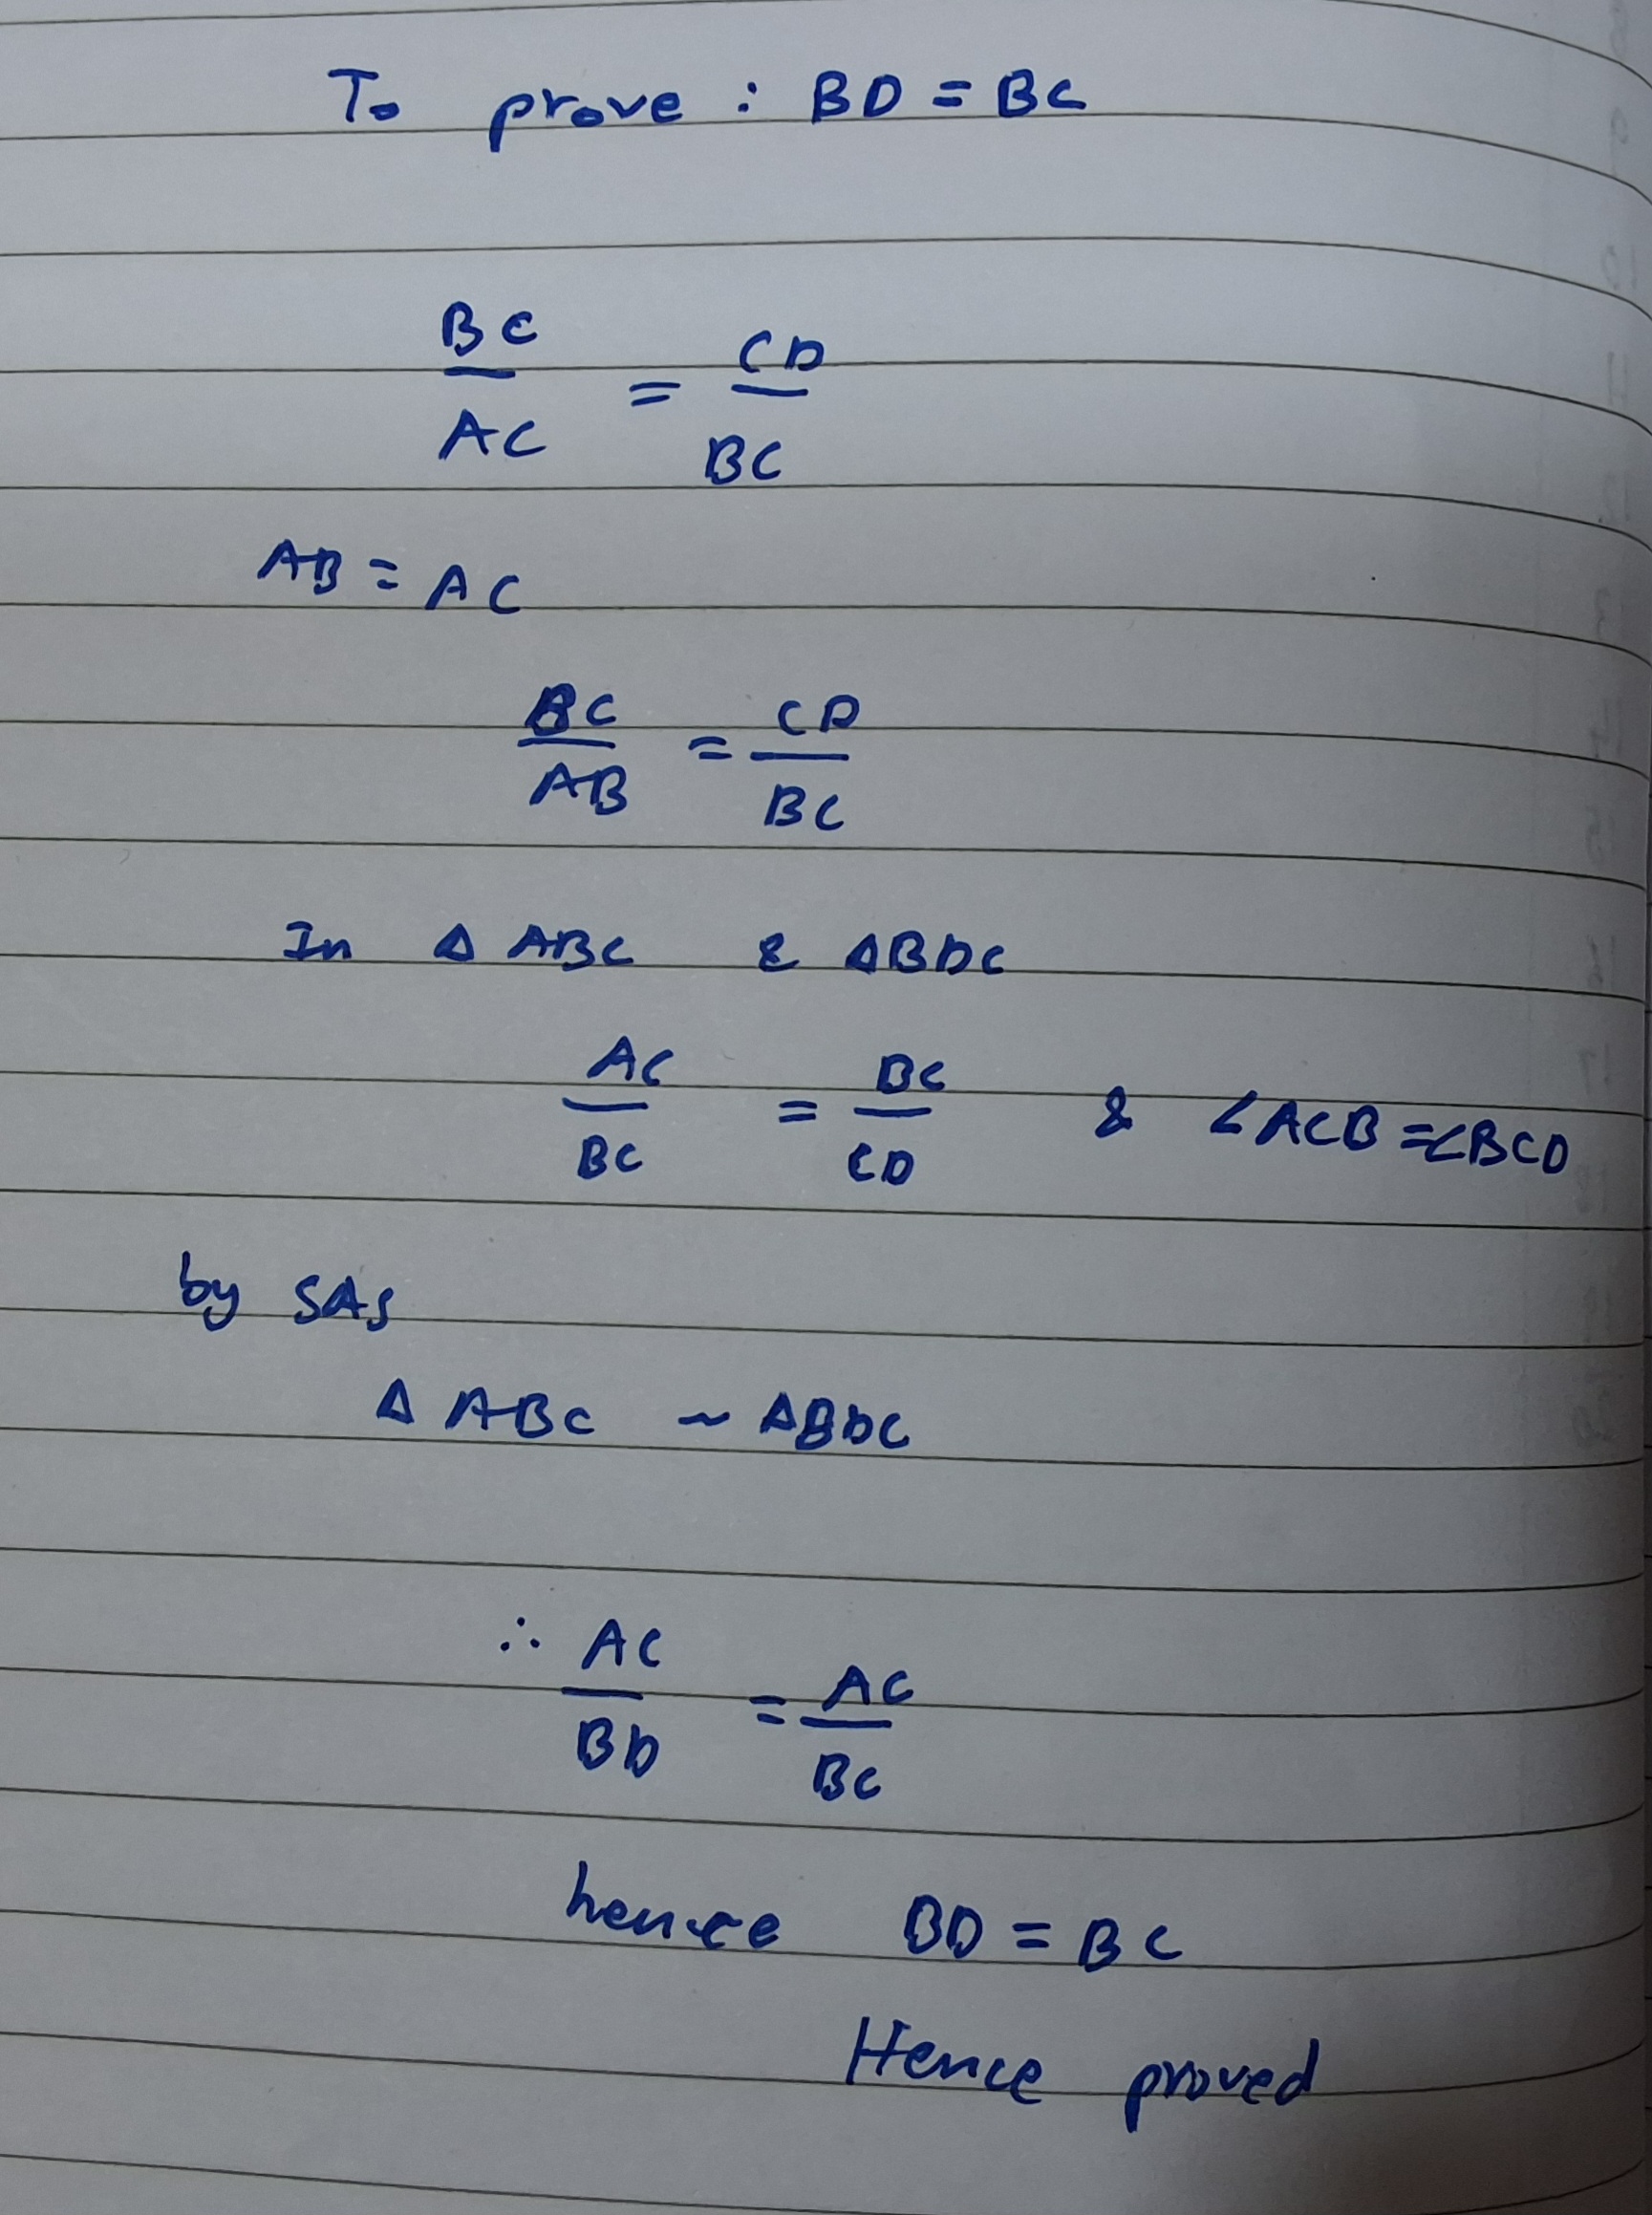 To prove : BD = BC
BC/AC = CD/BC
AB = AC
BC/AB = CD/BC
In Δ ABC & ΔBDC
AC/BC = BC/CD & ∠ACB = ∠BCD
by SAS
Δ ABC ~ ΔBDC
∴ AC/BD = AC/BC
hence BD = BC
Hence proved